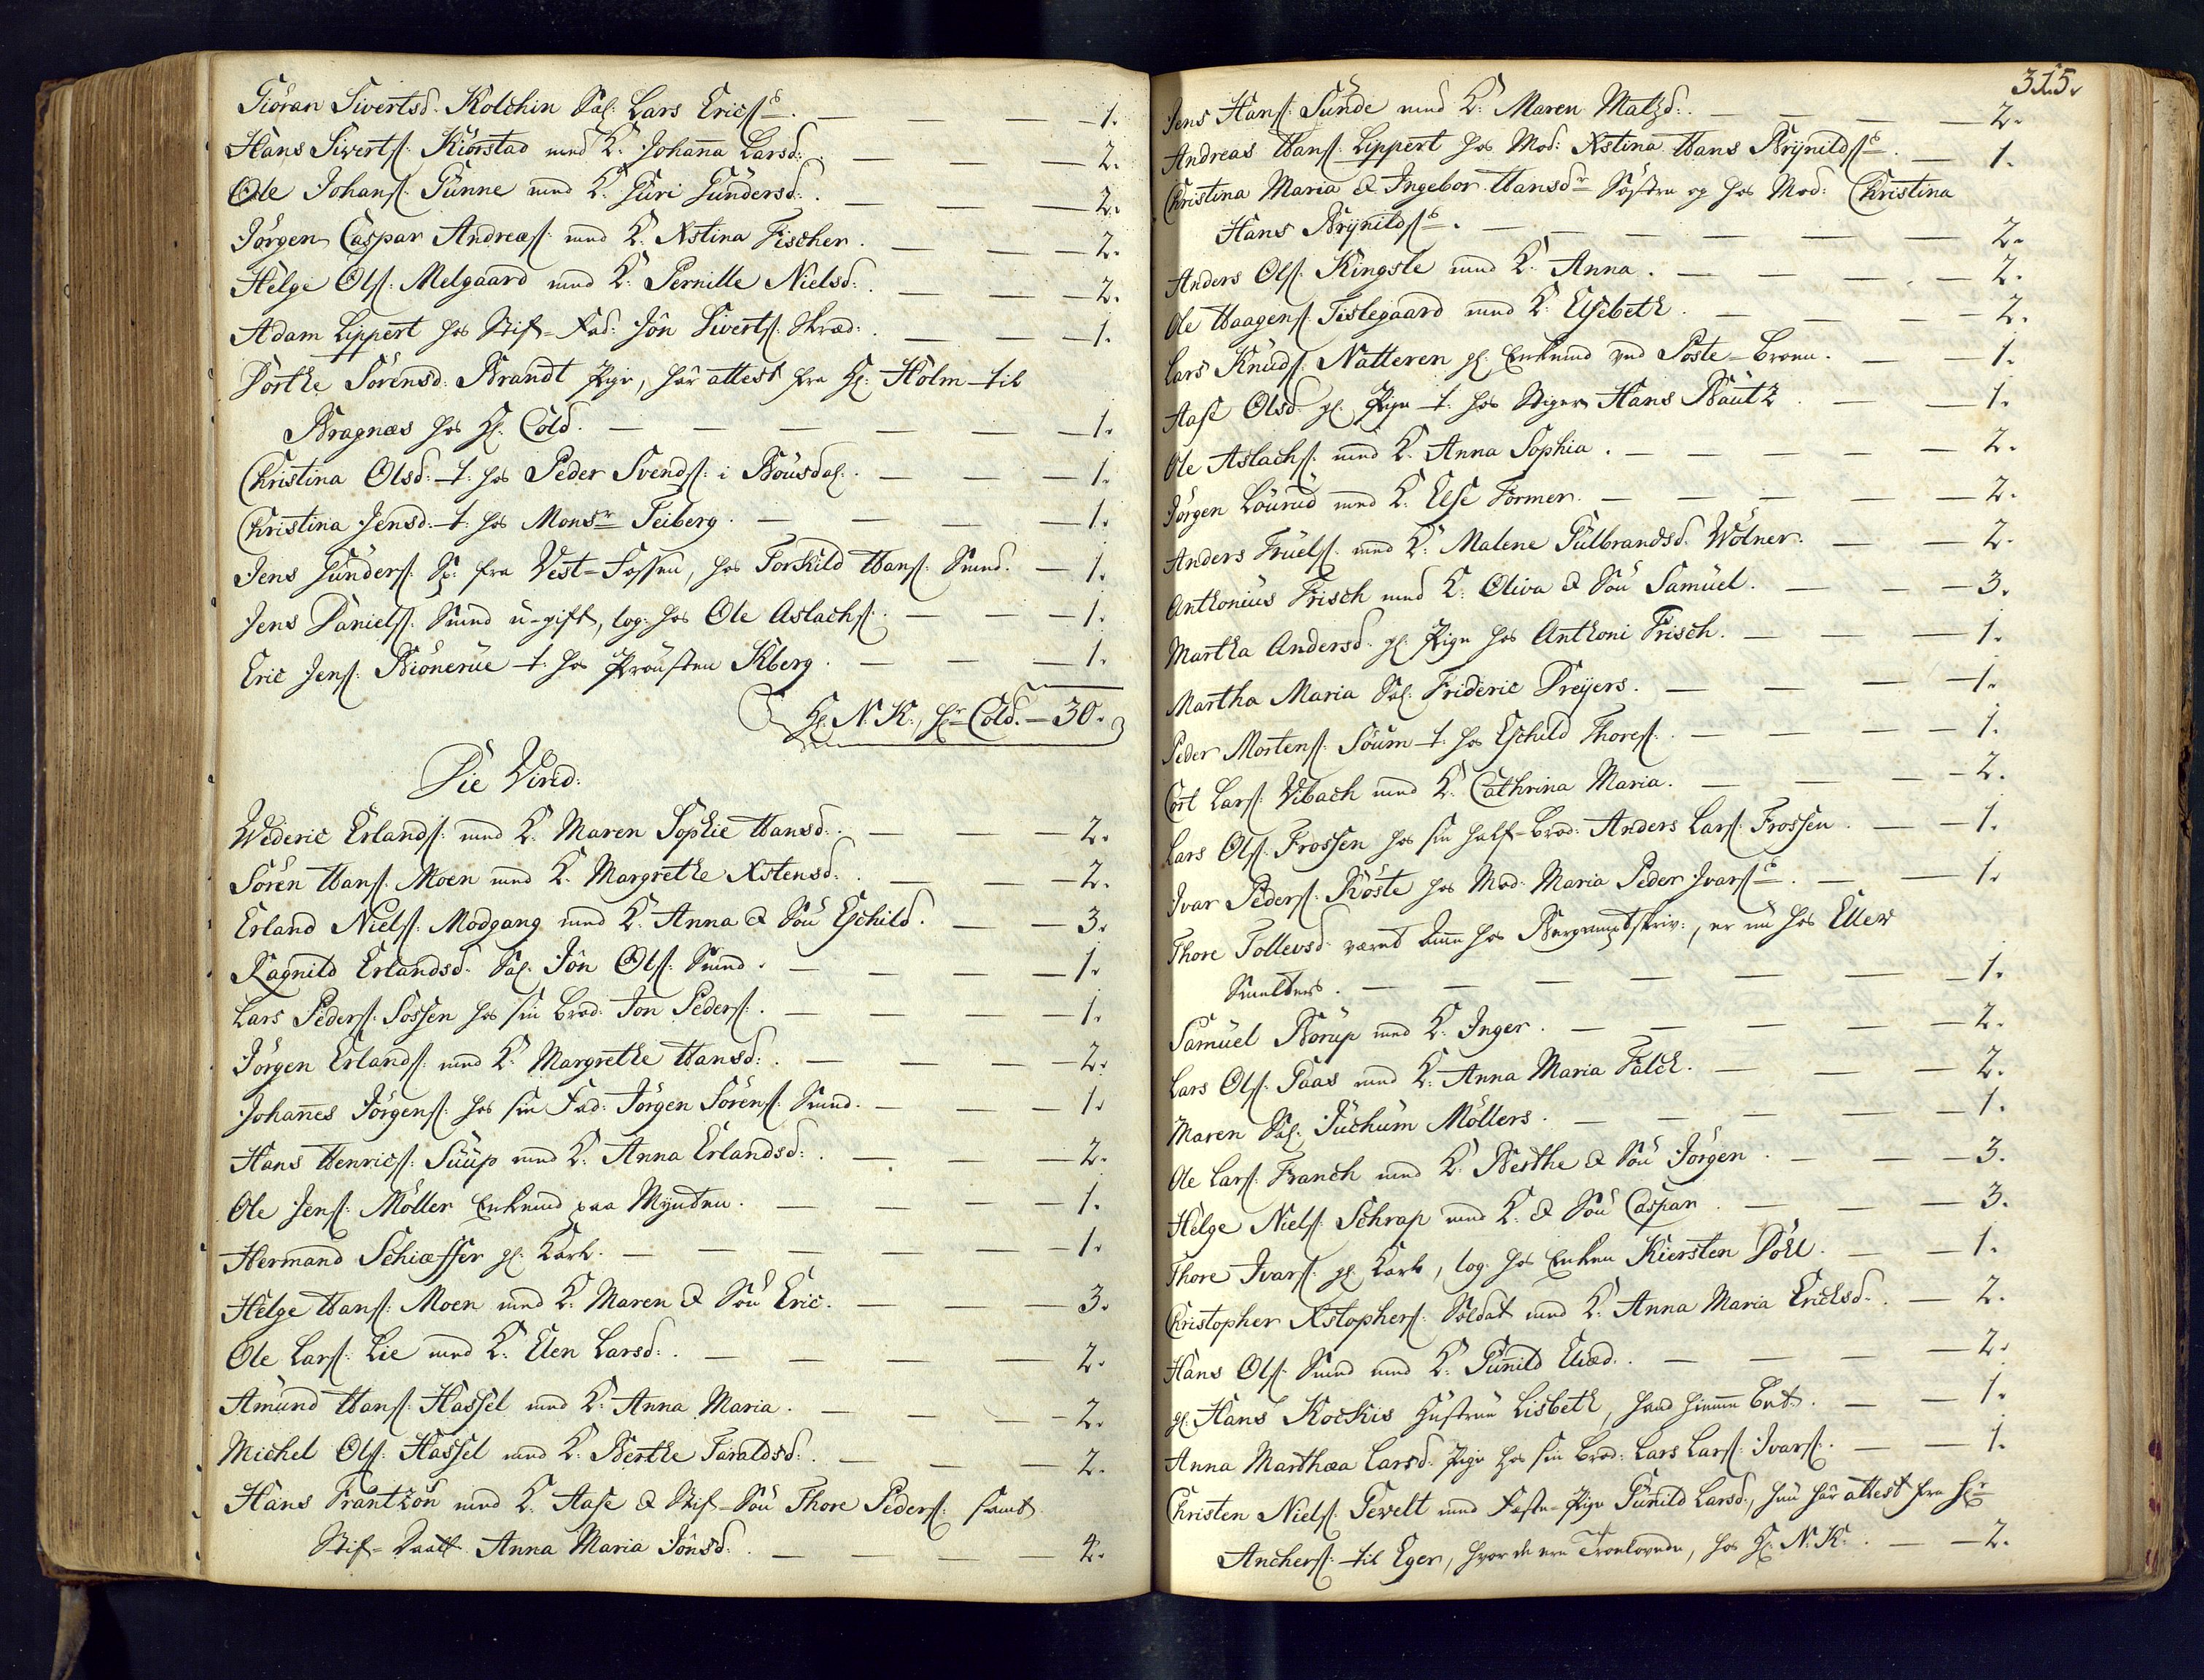 Giöran Sivertsd. Kolchin Sal: Lars Ericsß. — — — 1.
Hans Sivertß: Kiörstad med K: Johanna Larsd: — — 2.
Ole Johanß: Gunne med K: Guri Gundersd: — — — 2.
Jörgen Caspar Andreæß: med K: Xstina Fischer. — — 2.
Helge Olß: Melgaard med K: Pernille Nielsd: — — 2.
Adam Lippert hos Stif-Fad: Jon Sivertß: Skræd: — — 1.
Dorthe Sörensd: Brandt Pige, har attest fra H: Holm til
Bragnæs hos H: Cold. — — — — — 1.
Christina Olsd: t: hos Peder Svendß: i — — — 1.
Christina Jensd: t: hos Monsr Feiberg. — — — 1.
Jens Gunderß: Sp: fra Vest-Fossen, hos Torkild Hanß: Smed. — 1.
Jens Danielß: Smed u-gift, log: hos Ole Aslachß: — — — 1.
Eric Jenß: Biönerüe t: hos Prousten Kberg. — — — 1.
H: N. K:, Hr Cold. — 30.
Die Virid:
Wideric Erlandß: med K: Maren Sophie Hansd: — — — 2.
Sören Hanß: Moen med K: Margrethe Xstensd: — — — 2.
Erland Nielß: Modgang med K: Anna & Sön Eschild. — — 3.
Ragnild Erlandsd. Sal: Jön Olß: Smed. — — — — 1.
Lars Pederß: Fossen hos sin Brod: Jon Pederß: — — — 1.
Jörgen Erlandß: med K: Margrethe Hansd: — — — 2.
Johannes Jörgenß: hos sin Fad: Jörgen Sörenß: Smed. — — 1.
Hans Henricß: Suup med K: Anna Erlandsd: — — — 2.
Ole Jenß: Möller Enkemd paa Mynten. — — — 1.
Hermand Schiæffer gl: Karl. — — — — 1.
Helge Hanß: Moen med K: Maren & Sön Eric. — — — 3.
Ole Larß: Lie med K: Elen Larsd: — — — — 2.
Amund Hanß: Hassel med K: Anna Maria. — — — 2.
Michel Olß: Hassel med K: Berthe Taraldsd: — — — 2.
Hans Frantzön med K: Aase & Stif-Sön Thore Pederß: samt
Stif-Daatt: Anna Maria Jönsd: — — — — 4.
315.
Jens Hanß: Sunde med K: Maren Matzd: — — — 2.
Andreas Hanß: Lippert hos Mod: Xstina Hans Brynildß. — 1.
Christina Maria & Ingebor Hansdr Söstre og hos Mod: Christina
Hans Brynildß. — — — — — 2.
Anders Olß: Kingsle med K: Anna. — — — — 2.
Ole Haagenß: Tislegaard med K: Elsebeth. — — — 2.
Lars Knudß: Natteren gl: Enkemd ved Poste-Broen. — — 1.
Aase Olsd: gl: Pige t: hos Stiger Hans Bautz. — — 1.
Ole Aslachß: med K: Anna Sophia. — — — — 2.
Jörgen Löurud med K: Else Former. — — — — 2.
Anders Truelß: med K: Malene Gulbrandsd: Wölner. — — 2.
Anthonius Frisch med K: Oliva & Sön Samuel. — — — 3.
Martha Andersd: gl: Pige hos Anthoni Frisch. — — — 1.
Martha Maria Sal: Frideric Dreyers. — — — 1.
Peder Mortenß: Söum t: hos Eschild Thoreß: — — — 1.
Cort Larß: Vibach med K: Cathrina Maria. — — — 2.
Lars Olß: Frossen hos sin half-Brod: Anders Larß: Frossen. — — 1.
Ivar Pederß: Köste hos Mod: Maria Peder Ivarß. — — 1.
Thore Tollevsd: været Amme hos Bergamptskriv:, er nu hos Eller
Smelters. — — — — — 1.
Samuel Borup med K: Inger. — — — — 2.
Lars Olß: Paas med K: Anna Maria Falch. — — — 2.
Maren Sal: Juchum Möllers. — — — — 1.
Ole Larß: Franch med K: Berthe & Sön Jörgen. — — — 3.
Helge Nielß: Schrap med K: & Sön Caspar. — — — 3.
Thore Ivarß: gl: Karl, log: hos Enken Kiersten Döll. — — 1.
Christopher Xstopherß: Soldat med K: Anna Maria Erichsd: — 2.
Hans Olß: Smed med K: Gunild — — — 2.
gl: Hans Kockis Hustrue Lisbeth, hand hiemme Ber: — — 1.
Anna Marthæa Larsd: Pige hos sin Brod: Lars Larß: Ivarß: — — 1.
Christen Nielß: Gevelt med Fæste-Pige Gunild Larsd:, hun har attest fra Hr
Ancherß: til Eger, hvor de ere Troelovede, hos H: N: K: — — 2.